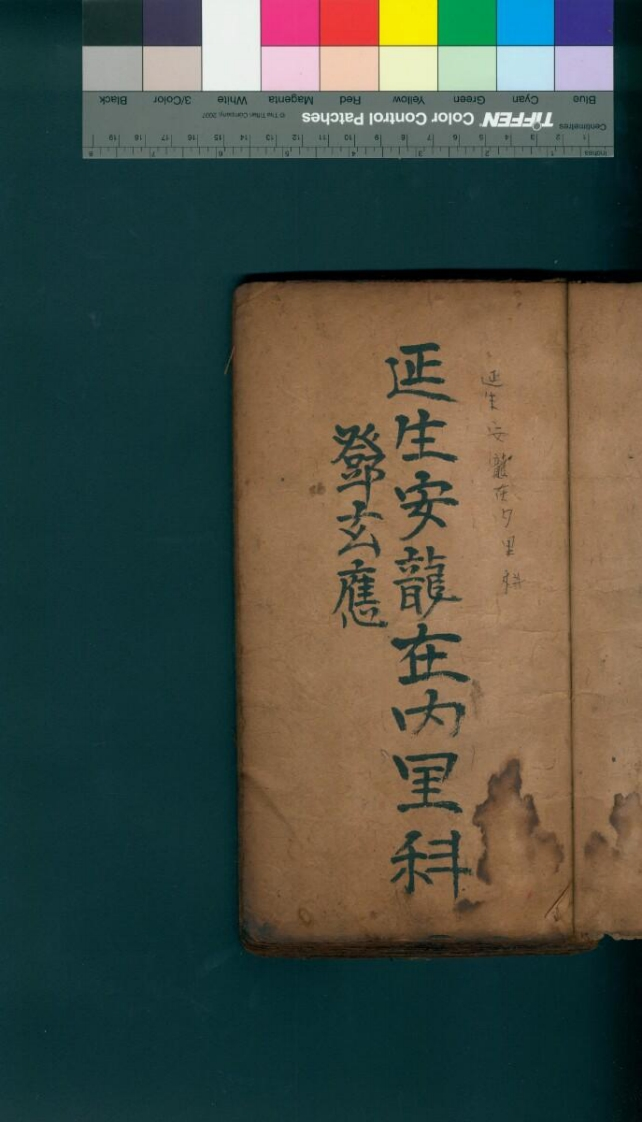 Blue Cyan Green Yellow Red Magenta White 3/Color Black
TIFFEN Color Control Patches © The Tiffen Company, 2007
Centimetres 1 2 3 4 5 6 7 8 9 10 11 12 13 14 15 16 17 18 19
Inches 1 2 3 4 5 6 7 8
延生安龍在内里科
延生安龍在内里科
鄧玄應